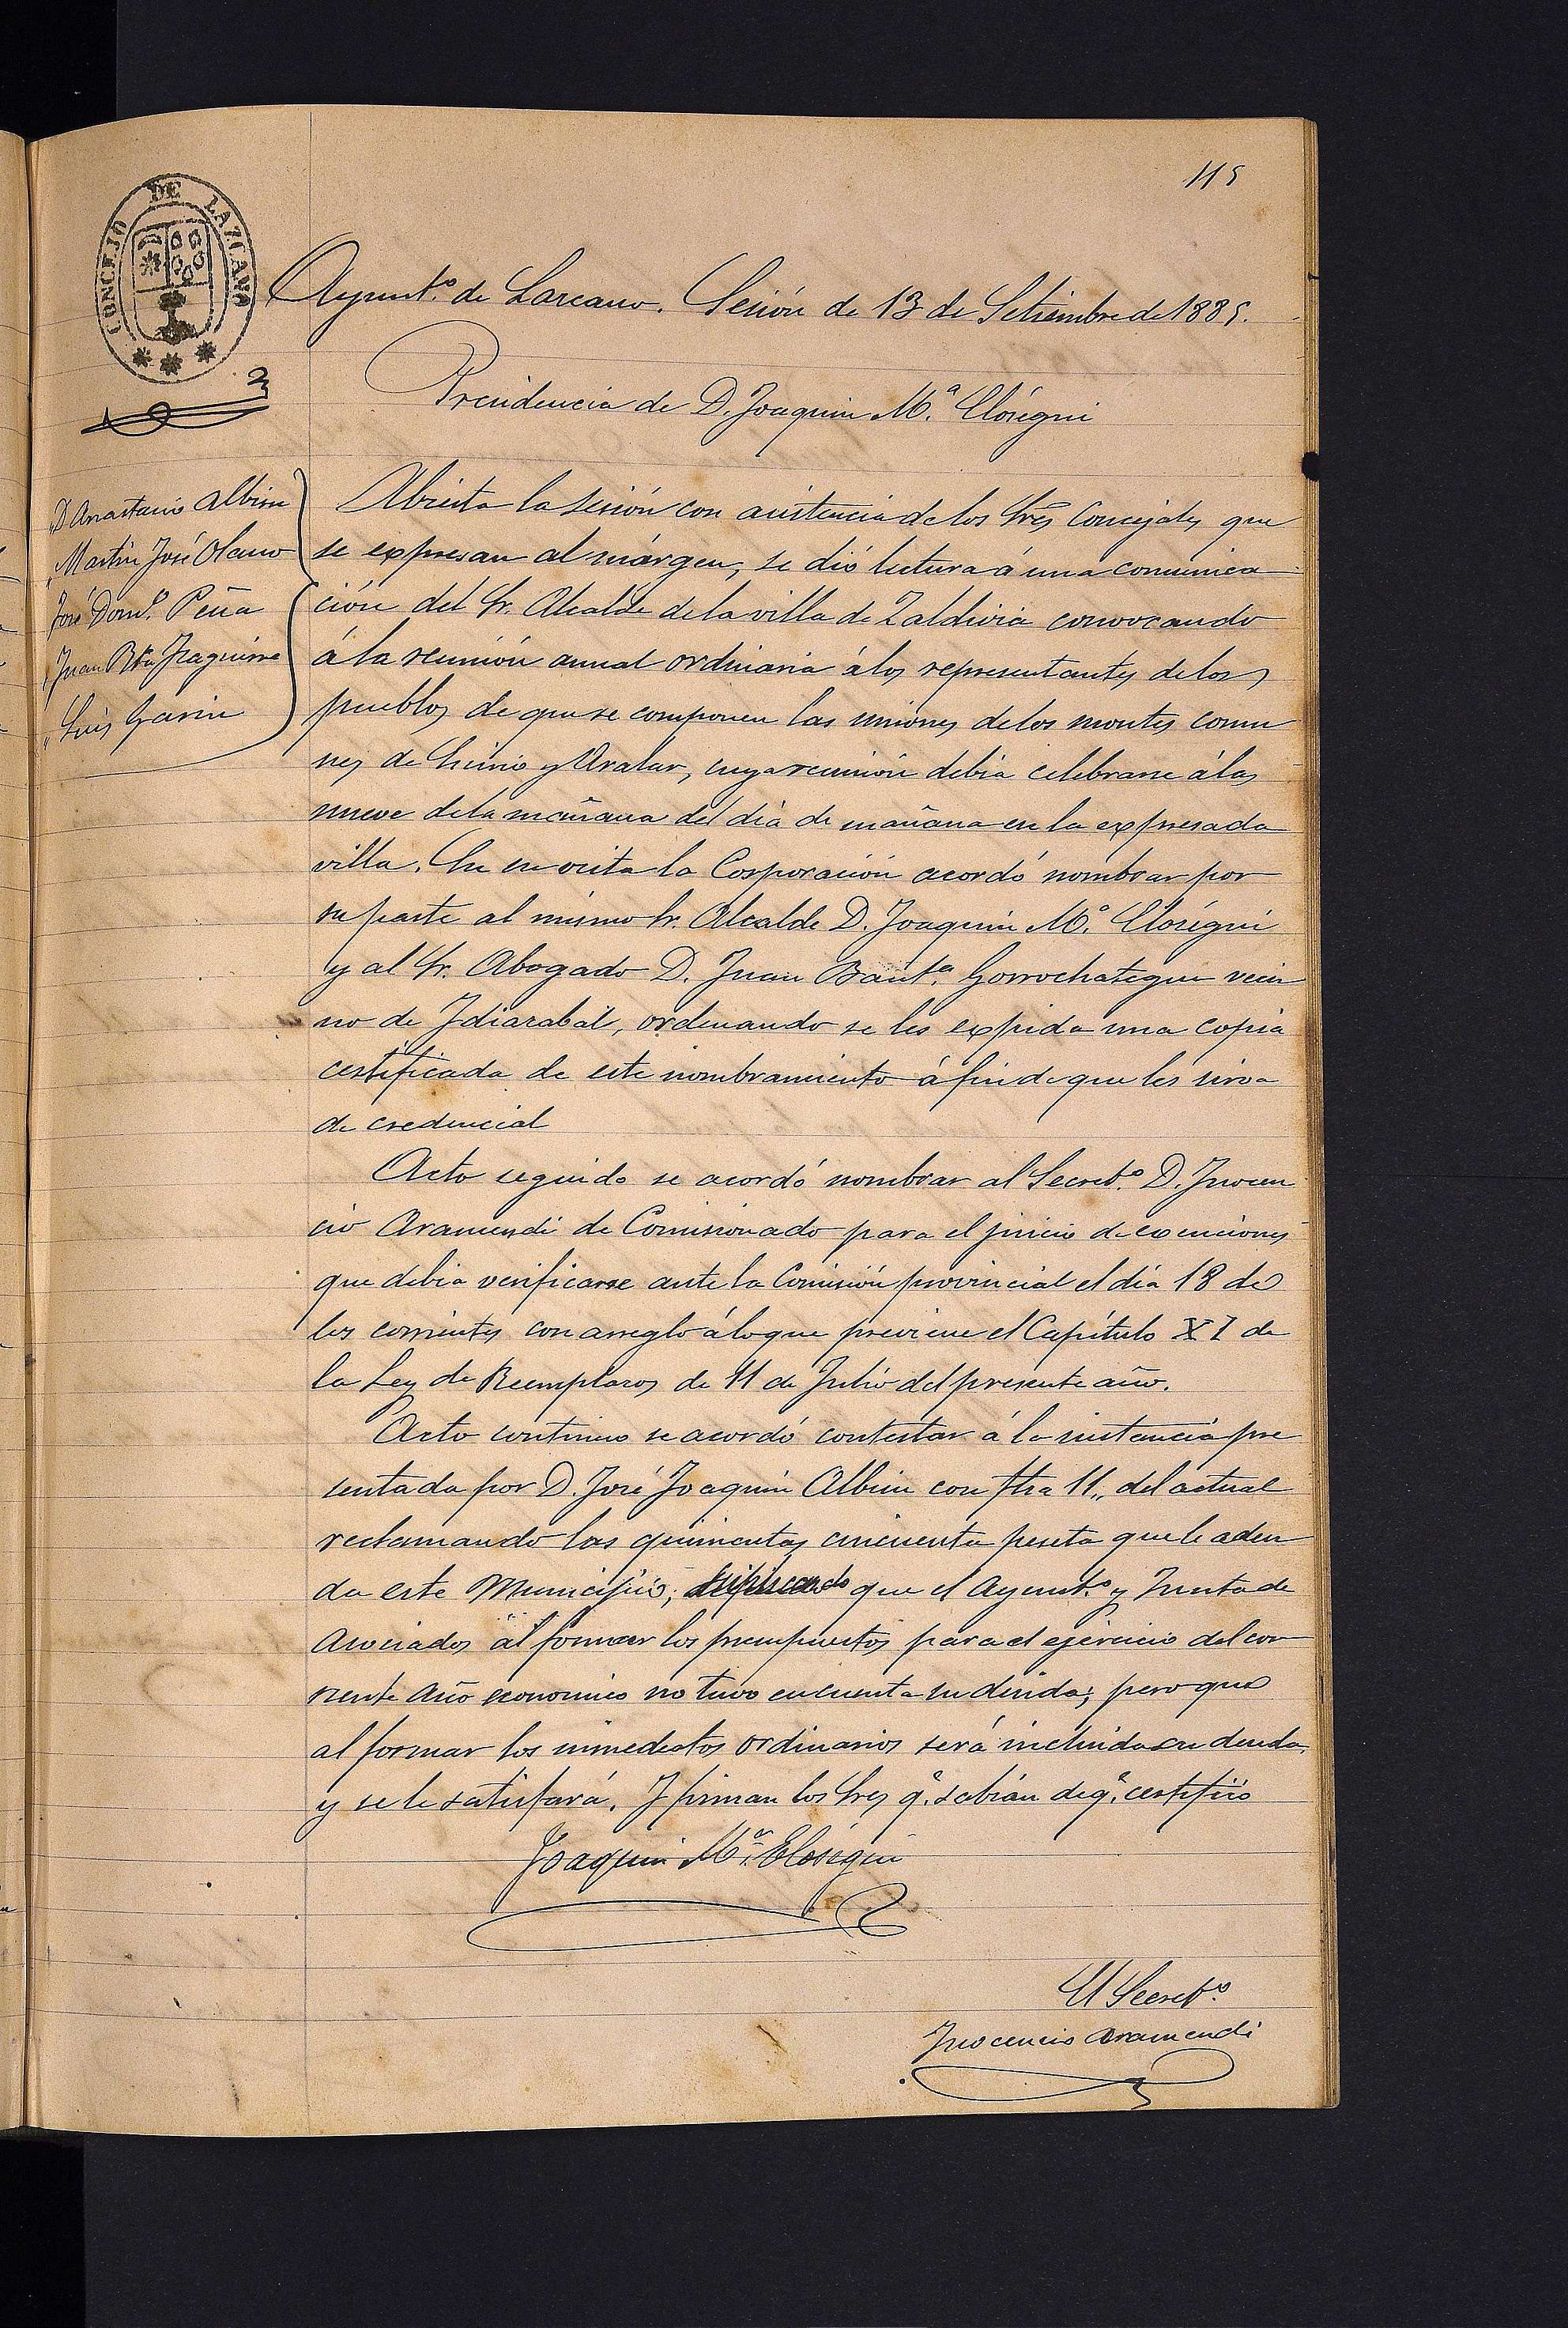 115
CONCEJO DE LAZCANO
Ayunt.º de Lazcano. Sesión de 13 de Setiembre de 1885.
Presidencia de D. Joaquin M.ª Elósegui
D Anastasio Albisu
" Martin José Olano
" José Dom.º Peña
" Juan Bta Iraguirre
" Luis Garin
Abierta la sesión con asistencia de los Sres Concejales que
se expresan al márgen, se dió lectura á una comunica
ción del Sr. Alcalde de la villa de Zaldivia convocando
á la reunión anual ordinaria á los representantes de los
pueblos de que se componen las uniones de los montes comu
nes de Enirio y Aralar, cuya reunión debia celebrarse á las
nueve de la mañana del dia de mañana en la expresada
villa. En su vista la Corporación acordó nombrar por
su parte al mismo Sr. Alcalde D. Joaquin M.ª Elósegui
y al Sr. Abogado D. Juan Baut.ª Gorrochategui veci
no de Idiazabal, ordenando se les expida una copia
certificada de este nombramiento á fin de que les sirva
de credencial
Acto seguido se acordó nombrar al Secret.º D. Inocen
cio Aramendi de Comisionado para el juicio de exenciones
que debia verificarse ante la Comisión provincial el dia 18 de
los corrientes con arreglo á lo que previene el Capítulo XI de
la Ley de Reemplazos de 11 de Julio del presente año.
Acto continuo se acordó contestar á la instancia pre
sentada por D. José Joaquin Albisu con fha 11,, del actual
reclamando las quinientas cincuenta peseta que le adeu
da este Municipio; que el Ayunt.º y Junta de
Asociados al formar los presupuestos para el ejercicio del cor
riente año economico no tuvo en cuenta su deuda; pero que
al formar los inmediatos ordinarios será incluida su deuda,
y se le satisfará. Y firman los Sres q.e sabián de q.e certifico
Joaquin M.ª Elósegui
El Secret.º
Inocencio Aramendi